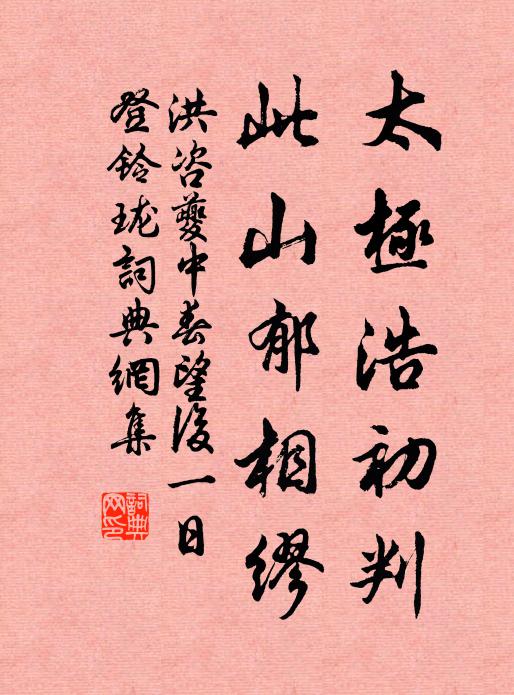 太極浩初判
此山郁相繆
洪咨夔中春望後一日
登鈴瓏詞典網集
詞典
网印